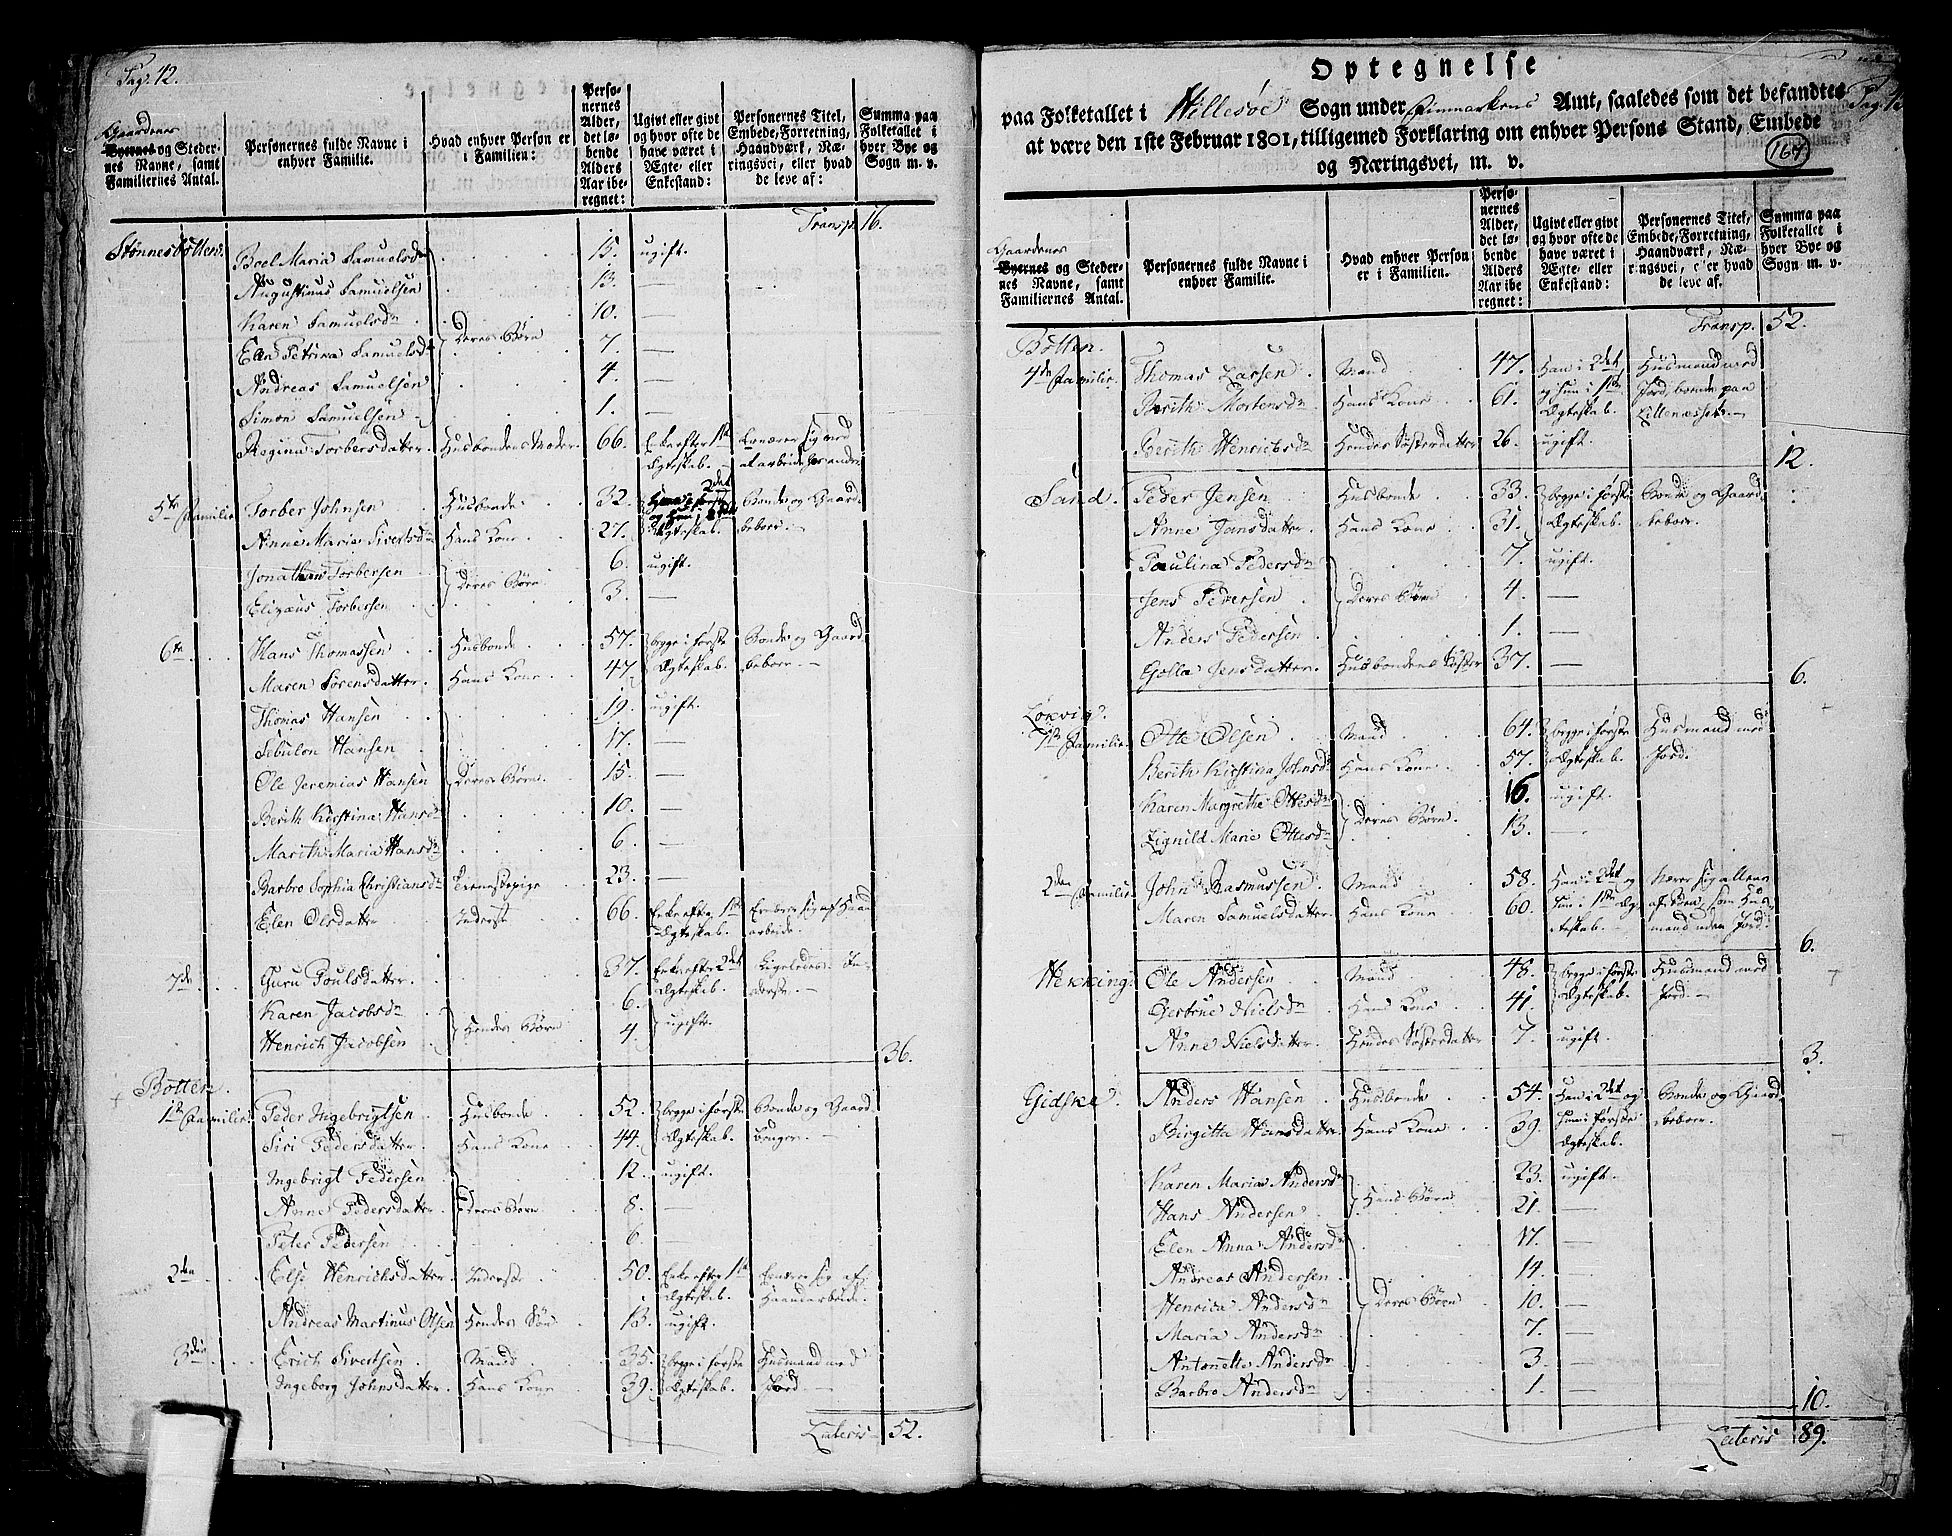 Pag. 42.
Gaardenes
Byernes og Steder-
nes Navne, samt
Familiernes Antal.
Personernes fulde Navne i
enhver Familie.
Hvad enhver Person er
i Familien:
Perso-
nernes
Alder,
det lø-
bende
Alders
Aar ibe-
regnet:
Ugivt eller givt
og hvor ofte de
have været i
Ægte- eller
Enkestand:
Personernes Titel,
Embede, Forretning,
Haandværk, Næ-
ringsvei, eller hvad
de leve af:
Summa paa
Folketallet i
hver Bye og
Sogn m. v.
Transp. 16.
Stønnesbotten. Boel Maria Samuelsdr 15. ugift.
Augustinus Samuelsen 13. —
Karen Samuelsdr 10. —
Elen Petrina Samuelsdr Deres Børn 7. —
Andreas Samuelsen 4. —
Simon Samuelsen 1. —
Regina Torbersdatter Husbondens Moder. 66. Enke efter 1ste Ernærer sig med
Ægteskab. at arbeide for andre
5te Familie Torber Johnsen Husbonde 32. 2det Bonde og Gaard-
Anne Marie Sivertsdr Hans Kone 27. Ægteskab. beboer. —
Jonathan Torbersen 6. ugift.
Elizæus Torbersen Deres Børn 3. —
6te Hans Thomassen Husbonde 57. begge i første Bonde og Gaard-
Maren Sørensdatter. Hans Kone 47. Ægteskab. beboer. —
Thomas Hansen 19. ugift.
Sebulon Hansen 17. —
Ole Jeremias Hansen Deres Børn. 15. —
Berith Kirstina Hansdr 10. —
Marith Maria Hansdr 6. —
Barbro Sophia Christiansdr Tienestepige 23. —
Elen Olsdatter Inderst 66. Enke efter 1ste Ernærer sig af Haand-
Ægteskab. arbeide.
7de Guru Poulsdatter 37. Enke efter 2det Ligeledes In-
Karen Jacobsdr 6. Ægteskab. derste. —
Henrich Jacobsen Hendes Børn 4. ugift.
36.
Botten.
1ste Familie Peder Ingebrigtsen Husbonde 52. begge i første Bonde og Gaard-
Siri Pedersdatter Hans Kone 44. Ægteskab. bruger. —
Ingebrigt Pedersen 12. ugift.
Anne Pedersdatter Deres Børn 8. —
Peter Pedersen 6. —
2den Else Henrichsdatter Inderste 50. Enke efter 1ste Ernærer sig af
Ægteskab. Haandarbeide.
Andreas Martinus Olsen Hendes Søn 13. ugift.
3die Erich Sivertsen Mand 35. begge i første Husmand med
Ingeborg Johnsdatter. Hans Kone 39. Ægteskab. Jord. —
Lateris 52.
Optegnelse
paa Folketallet i Hillesøe Sogn under Finmarkens Amt, saaledes som det befandtes
at være den 1ste Februar 1801, tilligemed Forklaring om enhver Persons Stand, Embede
og Næringsvei, m. v.
Pag. 43
164
Gaardenes
Byernes og Steder-
nes Navne, samt
Familiernes Antal.
Personernes fulde Navne i
enhver Familie.
Hvad enhver Person
er i Familien.
Perso-
nernes
Alder,
det lø-
bende
Alders
Aar ibe-
regnet:
Ugivt eller givt
og hvor ofte de
have været i
Ægte- eller
Enkestand:
Personernes Titel,
Embede, Forretning,
Haandværk, Næ-
ringsvei, eller hvad
de leve af.
Summa paa
Folketallet i
hver Bye og
Sogn m. v.
Transp. 52.
Botten.
4de Familie. Thomas Larsen Mand 47. Han i 2det Husmand med
Berith Mortensdr Hans Kone 61. og hun i 1ste Jord, bonde paa
Ægteskab. Lillenæsset. —
Berith Henrichsdr Hendes Søsterdatter 26. ugift.
12.
Sand. Peder Jensen Husbonde 33. begge i første Bonde og Gaard-
Anne Jansdatter Hans Kone 31. Ægteskab. beboer.
Paulina Pedersdr 7. ugift.
Jens Pedersen Deres Børn 4. —
Anders Pedersen 1. —
Golla Jensdatter. Husbondens Søster 37. —
6.
Løxvig.
1ste Familie. Otte Olsen Mand 64. begge i første Husmand med
Berith Kirstina Johnsdr Hans Kone 57. Ægteskab. Jord.
Karen Margrethe Ottesdr 16. ugift.
Zignild Marie Ottesdr Deres Børn. 13. —
2den Familie John Rasmussen Mand 58. Han i 2det og
Maren Samuelsdatter. Hans Kone 60. hun i 1ste Æg- af Søen, som Hus-
teskab. mand uden Jord.
6.
Hekking. Ole Andersen Mand 48. begge i første Husmand med
Gertrue Nielsdr Hans Kone 41. Ægteskab. Jord. —
Anne Nielsdatter. Hendes Søsterdatter 7. ugift.
3.
Gidske. Anders Hansen Husbonde 54. Han i 2det og Bonde og Gaard-
Birgitta Hansdatter Hans Kone 39. hun i første beboer.
Ægteskab.
Karen Maria Andersdr 23. ugift.
Hans Andersen Hans Børn 21. —
Elen Anna Andersdr 17. —
Andreas Andersen 14. —
Henrica Andersdr Deres Børn 10. —
Maria Andersdr 7. —
Antonette Andersdr 3. —
Barbro Andersdr 1. —
10.
Lateris 89.